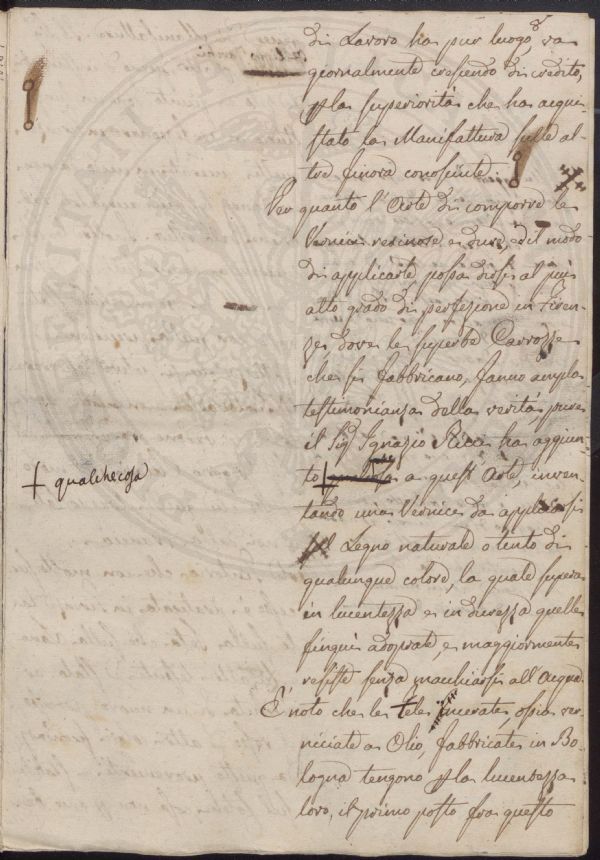 di Lavoro ha pur luogo, e va
giornalmente crescendo di credito,
p la superiorità che ha acqui-
stato la Manifattura sulle al-
tre finora conosciute.
Per quanto l'Arte di comporre le
Vernici resinose, e dure, ed il modo
di applicarle possa dirsi al più
alto grado di perfezione in Firen-
ze, dove le superbe Carrozze
che si fabbricano, fanno ampla
testimonianza della verità, pure
il Sig Ignazio Ricci ha aggiun-
to a quest'Arte, inven-
+ qualchecosa
tando una Vernice da applicarsi
al Legno naturale o tento di
qualunque colore, la quale supera
in lucentezza e in durezza quelle
finquì adoprate, e maggiormente
resiste senza macchiarsi all'Acqua.
È noto che le tele incerate, ossia ver-
niciate a Olio, fabbricate in Bo-
logna tengono p la lucentezza
loro, il primo posto fra questo